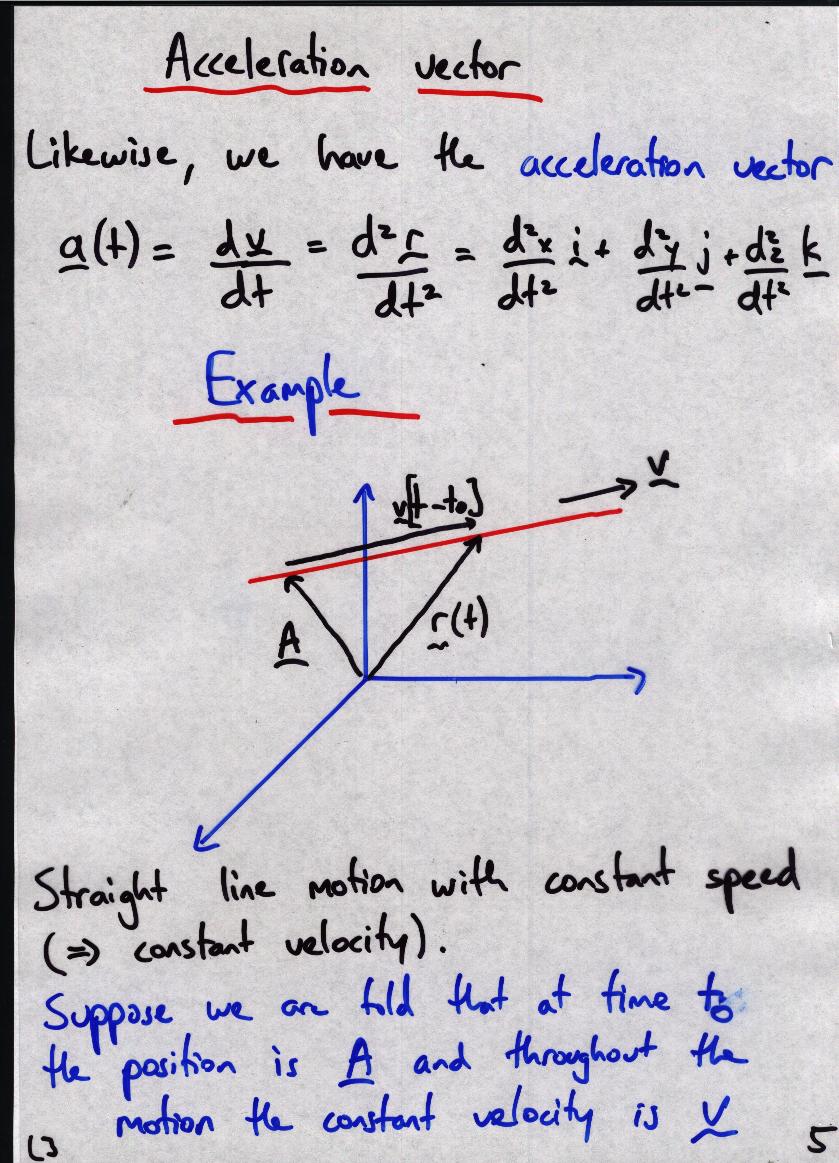 Acceleration vector
Likewise, we have the acceleration vector
a(t) = dv/dt = d²r/dt² = d²x/dt² i + d²y/dt² j + d²z/dt² k
Example
v[t-t₀]
v
A
r(t)
Straight line motion with constant speed
(⇒ constant velocity).
Suppose we are told that at time t₀
the position is A and throughout the
motion the constant velocity is v
5